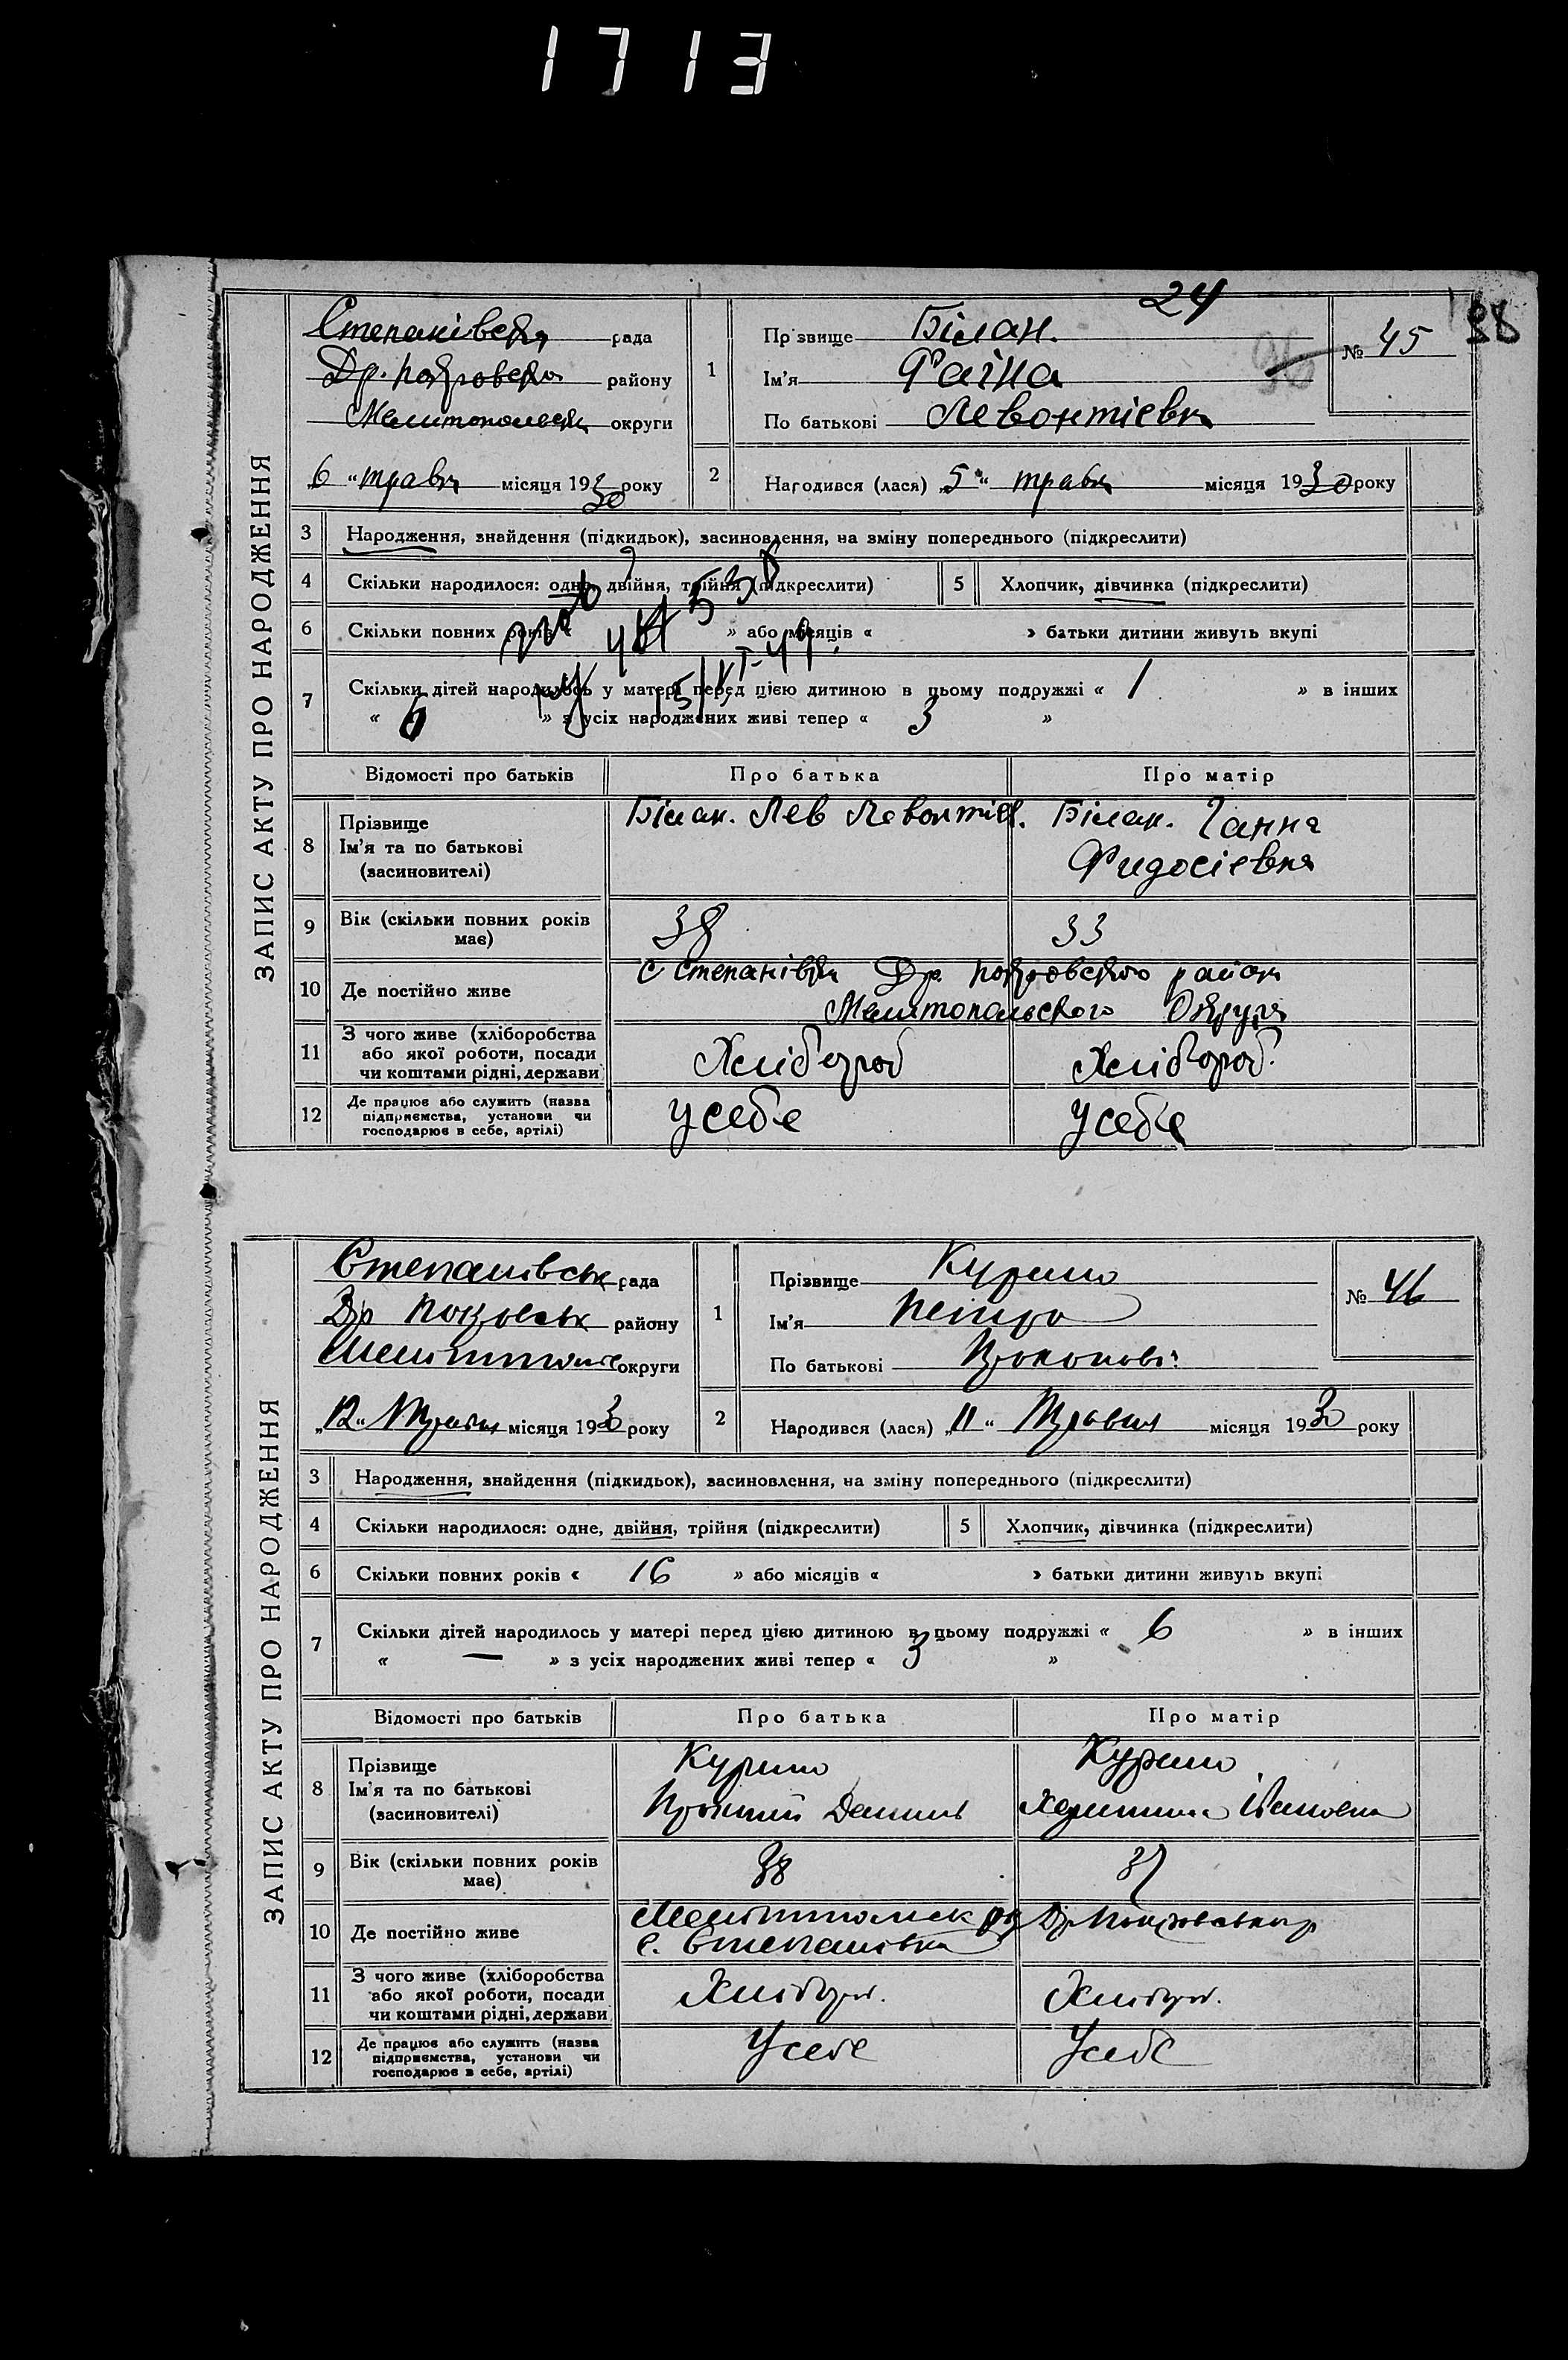 1713
24
88
96
ЗАПИС АКТУ ПРО НАРОДЖЕННЯ
Степанівськ рада
Др. Покровсько району
Мелитопольськ округи
„6“ травн місяця 1930 року
1 Прізвище Білан.
Ім’я Фаїна
По батькові Левонтіевн
№ 45
2 Народився (лася) „5“ травн місяця 1930 року
3 Народження, знайдення (підкидьок), засиновлення, на зміну попереднього (підкреслити)
4 Скільки народилося: одне, двійня, трійня (підкреслити) 5 Хлопчик, дівчинка (підкреслити)
6 Скільки повних років « » або місяців « » батьки дитини живуть вкупі
7 Скільки дітей народилось у матері перед цією дитиною в цьому подружжі « 1 » в інших
« 6 » з усіх народжених живі тепер « 3 »
Відомості про батьків Про батька Про матір
8 Прізвище
Ім’я та по батькові
(засиновителі)
Білан. Лев Левонтієв. Білан. Ганна
Фидосіевна
9 Вік (скільки повних років
має)
38 33
10 Де постійно живе
с Степанівки Др. Покровського район
Мелитопольського Округи
11 З чого живе (хліборобства
або якої роботи, посади
чи коштами рідні, держави
Хлібороб Хлібороб.
12 Де працює або служить (назва
підприємства, установи чи
господарює в себе, артілі)
у себе у себе
ЗАПИС АКТУ ПРО НАРОДЖЕННЯ
Степанівськ рада
Др Покровськ району
округи
„12“ Травня місяця 1930 року
1 Прізвище Курило
Ім’я Петро
По батькові
№ 46
2 Народився (лася) „11“ Травня місяця 1930 року
3 Народження, знайдення (підкидьок), засиновлення, на зміну попереднього (підкреслити)
4 Скільки народилося: одне, двійня, трійня (підкреслити) 5 Хлопчик, дівчинка (підкреслити)
6 Скільки повних років « 16 » або місяців « » батьки дитини живуть вкупі
7 Скільки дітей народилось у матері перед цією дитиною в цьому подружжі « 6 » в інших
« — » з усіх народжених живі тепер « 3 »
Відомості про батьків Про батька Про матір
8 Прізвище
Ім’я та по батькові
(засиновителі)
Курило Курило
9 Вік (скільки повних років
має)
38 37
10 Де постійно живе
с. Степанівка
11 З чого живе (хліборобства
або якої роботи, посади
чи коштами рідні, держави
Хлібор. Хлібор.
12 Де працює або служить (назва
підприємства, установи чи
господарює в себе, артілі)
У себе У себе